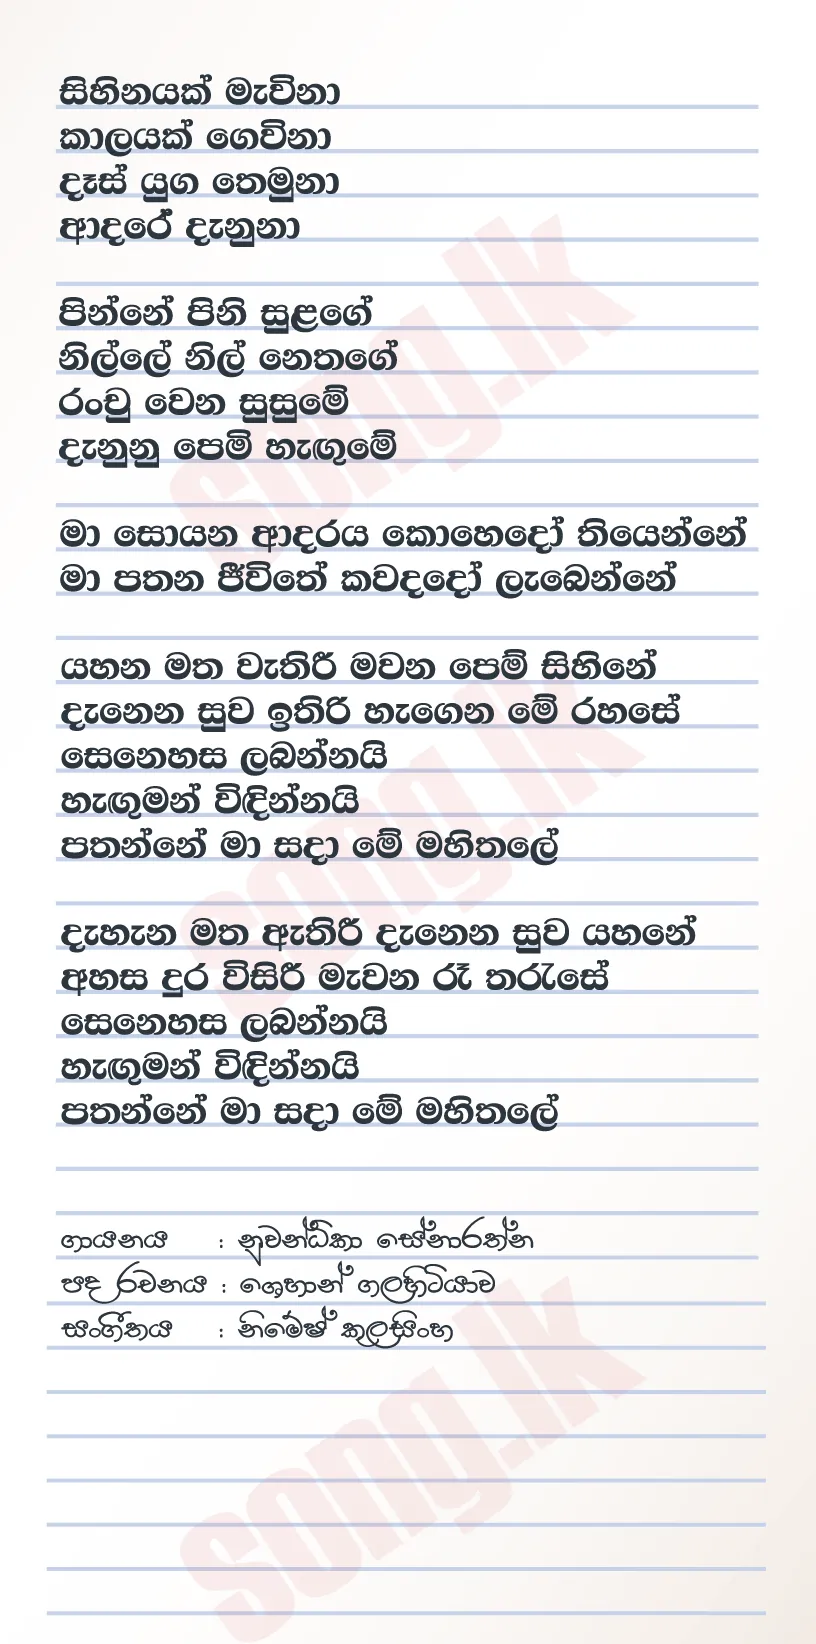 සිහිනයක් මැවිනා
කාලයක් ගෙවිනා
දෑස් යුග තෙමුනා
ආදරේ දැනුනා
පින්නේ පිනි සුළගේ
නිල්ලේ නිල් නෙතගේ
රංචු වෙන සුසුමේ
දැනුනු පෙමි හැඟුමේ
මා සොයන ආදරය කොහෙදෝ තියෙන්නේ
මා පතන ජීවිතේ කවදදෝ ලැබෙන්නේ
යහන මත වැතිරී මවන පෙම් සිහිනේ
දැනෙන සුව ඉතිරි හැගෙන මේ රහසේ
සෙනෙහස ලබන්නයි
හැඟුමන් විඳින්නයි
පතන්නේ මා සදා මේ මහිතලේ
දැහැන මත ඇතිරී දැනෙන සුව යහනේ
අහස දුර විසිරී මැවන රෑ තරැසේ
සෙනෙහස ලබන්නයි
හැඟුමන් විඳින්නයි
පතන්නේ මා සදා මේ මහිතලේ
ගායනය : නුවන්ධිකා සේනාරත්න
පද රචනය : ශෙහාන් ගලහිටියාව
සංගීතය : නිමේෂ් කුලසිංහ
song.lk
song.lk
song.lk